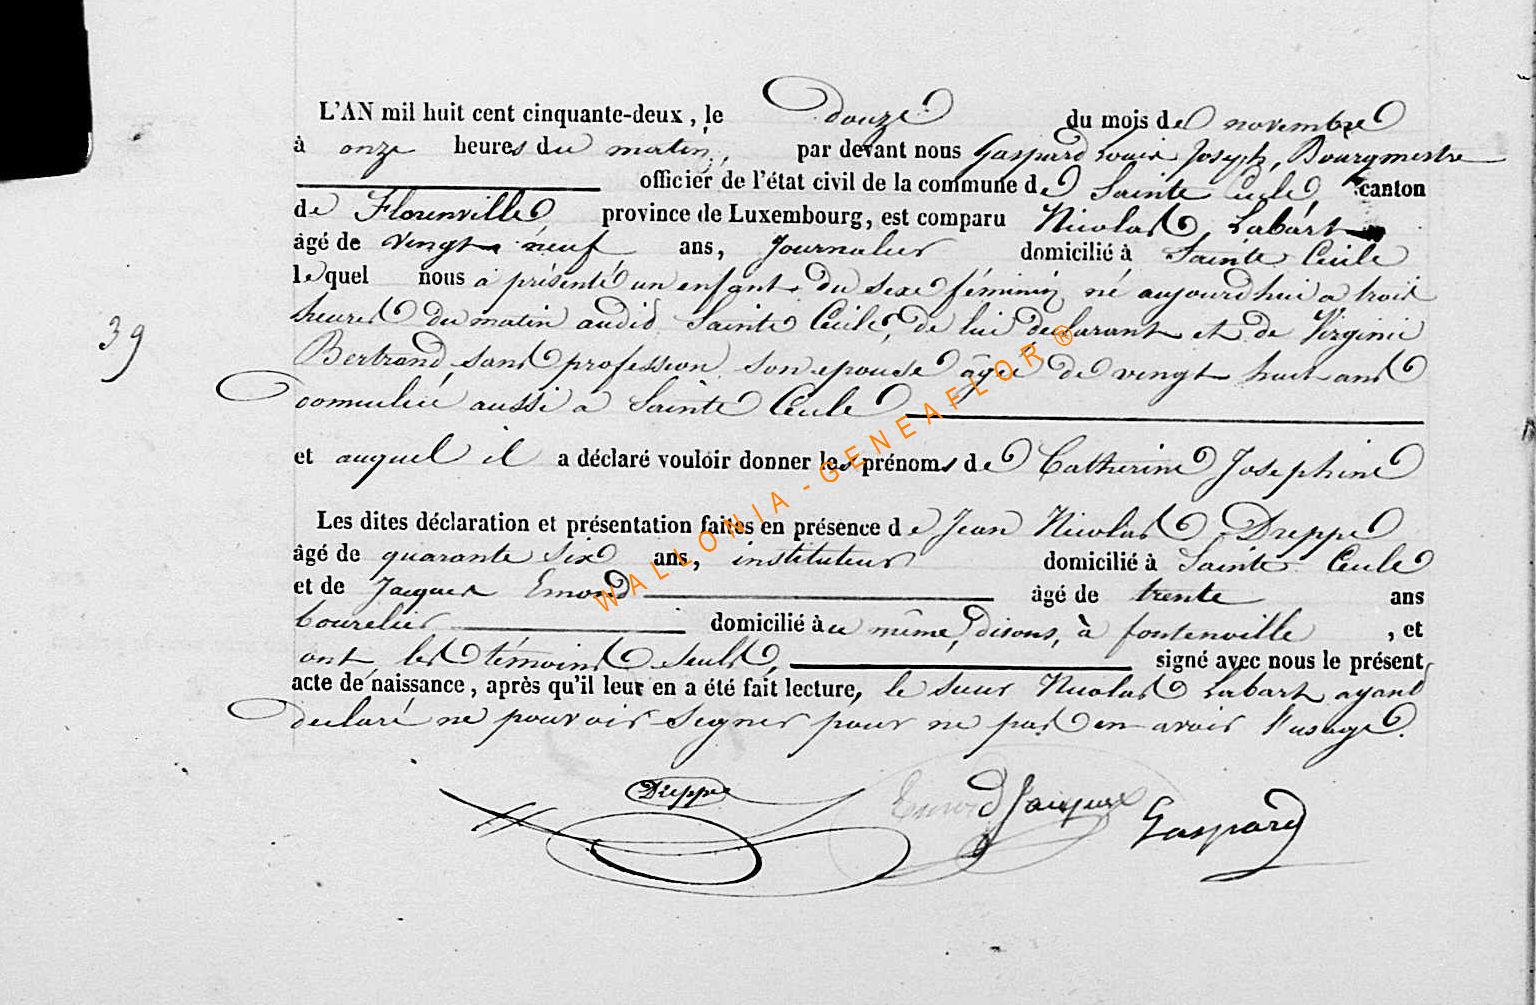 L'AN mil huit cent cinquante-deux, le douze du mois de novembre
à onze heures du matin, par devant nous Gaspard Louis Joseph, Bourgmestre
officier de l'état civil de la commune de Sainte Cecile, canton
de Florenville, province de Luxembourg, est comparu Nicolas Labart
âgé de vingt neuf ans, Journalier domicilié à Sainte Cecile
lequel nous a présenté un enfant du sexe féminin né aujourdhui a trois
heures du matin audit Sainte Cecile, de lui declarant et de Virginie
Bertrand sans profession son epouse âgée de vingt huit ans
domiciliée aussi a Sainte Cecile
et auquel il a déclaré vouloir donner les prénoms de Catherine Josephine
Les dites déclaration et présentation faites en présence de Jean Nicolas Dreppe
âgé de quarante six ans, instituteur domicilié à Sainte Cecile
et de Jacques Emond âgé de trente ans
bourelier domicilié à ce même, disons, à fontenville, et
ont les témoins seuls, signé avec nous le présent
acte de naissance, après qu'il leur en a été fait lecture, le sieur Nicolas Labart ayant
declaré ne pouvoir signer pour ne pas en avoir l'usage.
39
Dreppe Emond Jacques Gaspard
WALLONIA-GENEAFLOR®